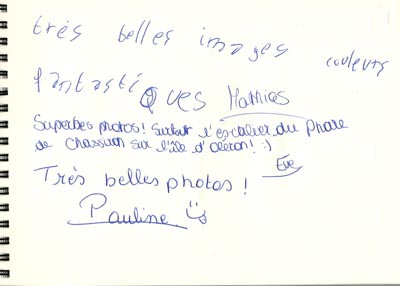 très belles images couleurs
fantastiQues Mathias
Superbes photos! Surtout l'escalier du Phare
de Chassiron sur l'île d'Oléron! :)
Eve
Très belles photos!
Pauline